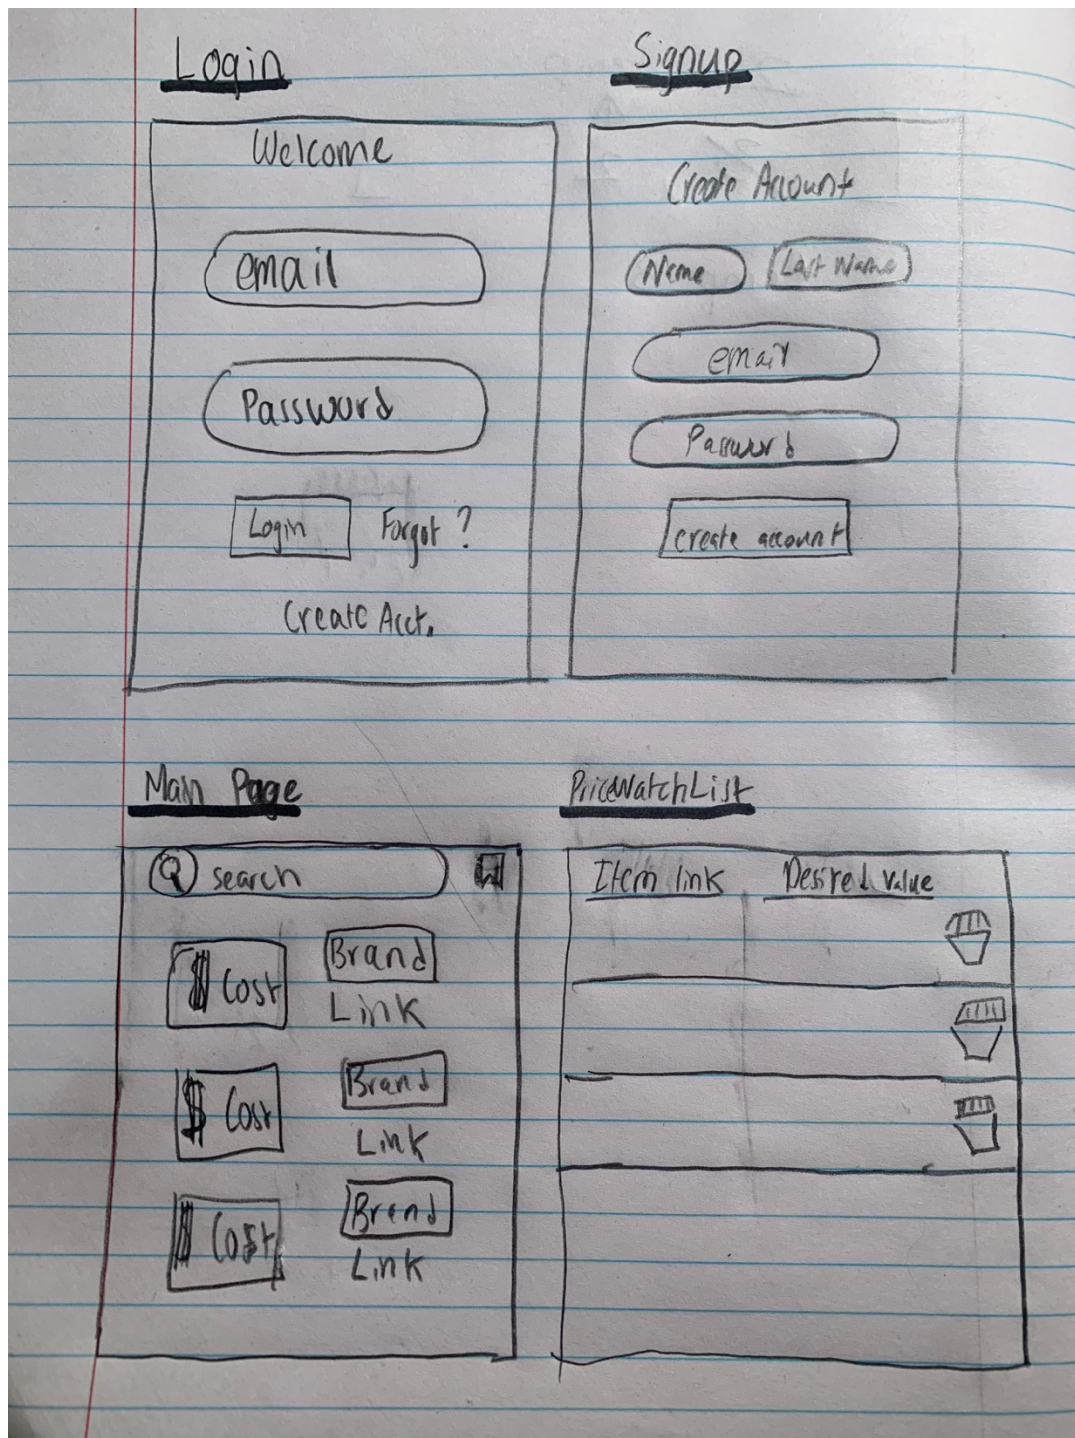 Login
Welcome
email
Password
Login Forgot ?
Create Acct.
Signup
Create Account
Name Last Name
email
Password
create account
Main Page
search
$ Cost Brand
Link
$ Cost Brand
Link
$ Cost Brand
Link
PriceWatchList
Item link Desired value